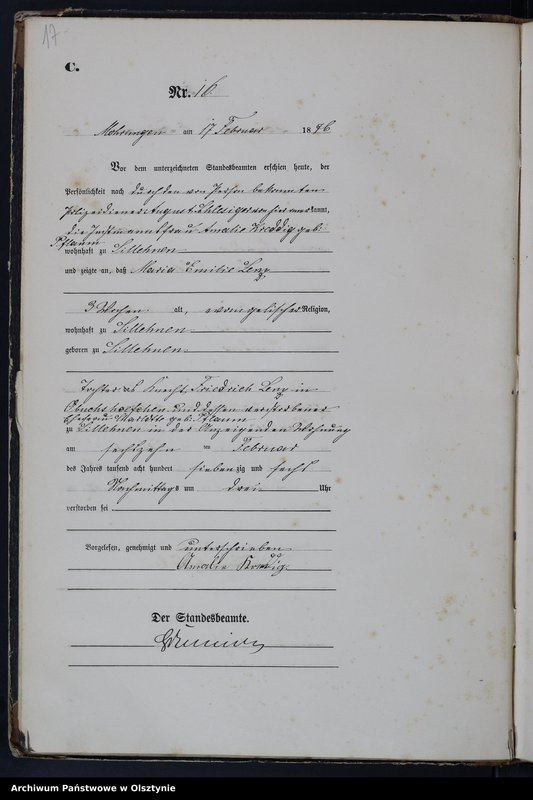 17
C.
Nr. 16
Mohrungen am 17 Februar 1876
Vor dem unterzeichneten Standesbeamten erschien heute, der
Persönlichkeit nach durch den von Person bekannten
Polizeidiener August von hier anerkannt,
die Amalie geb.
Pflaum
wohnhaft zu Sillehnen
und zeigte an, daß Maria Emilie Lenz
3 Wochen alt, evangelischer Religion,
wohnhaft zu Sillehnen
geboren zu Sillehnen
Tochter des Knecht Friedrich Lenz in
und dessen verstorbener
Ehefrau geb. Pflaum
zu Sillehnen in der Anzeigenden Wohnung
am sechszehn ten Februar
des Jahres tausend acht hundert siebenzig und sechs
Nachmittags um drei Uhr
verstorben sei
Vorgelesen, genehmigt und unterschrieben
Amalie
Der Standesbeamte.
Archiwum Państwowe w Olsztynie